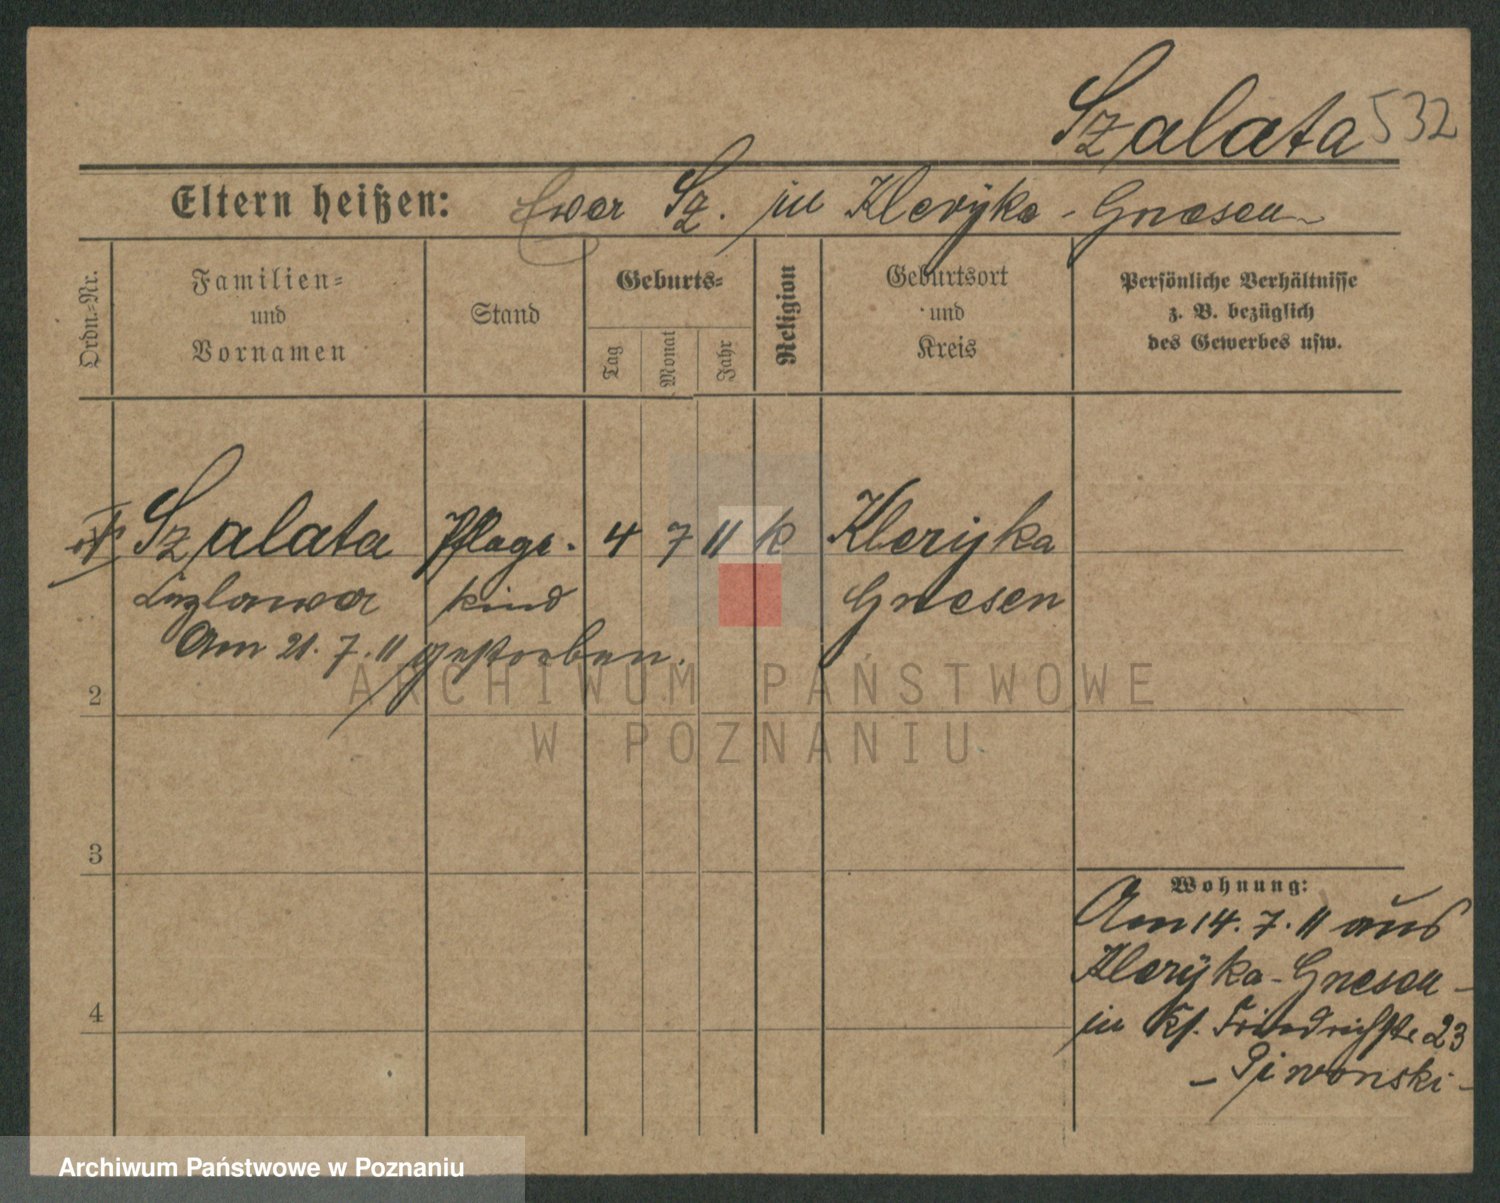 Szalata 532
Eltern heißen: Sz. in Kleryka - Gnesen
Ordn.-Nr.
Familien-
und
Vornamen
Stand
Geburts-
Tag
Monat
Jahr
Religion
Geburtsort
und
Kreis
Persönliche Verhältnisse
z. B. bezüglich
des Gewerbes usw.
Szalata Pflege- 4 7 11 k Kleryka
kind Gnesen
Am 21. 7. 11 gestorben.
2
3
4
Wohnung:
Am 14. 7. 11 aus
Kleryka - Gnesen -
in Friedrichstr. 23
- Piwonski -
ARCHIWUM PAŃSTWOWE
W POZNANIU
Archiwum Państwowe w Poznaniu